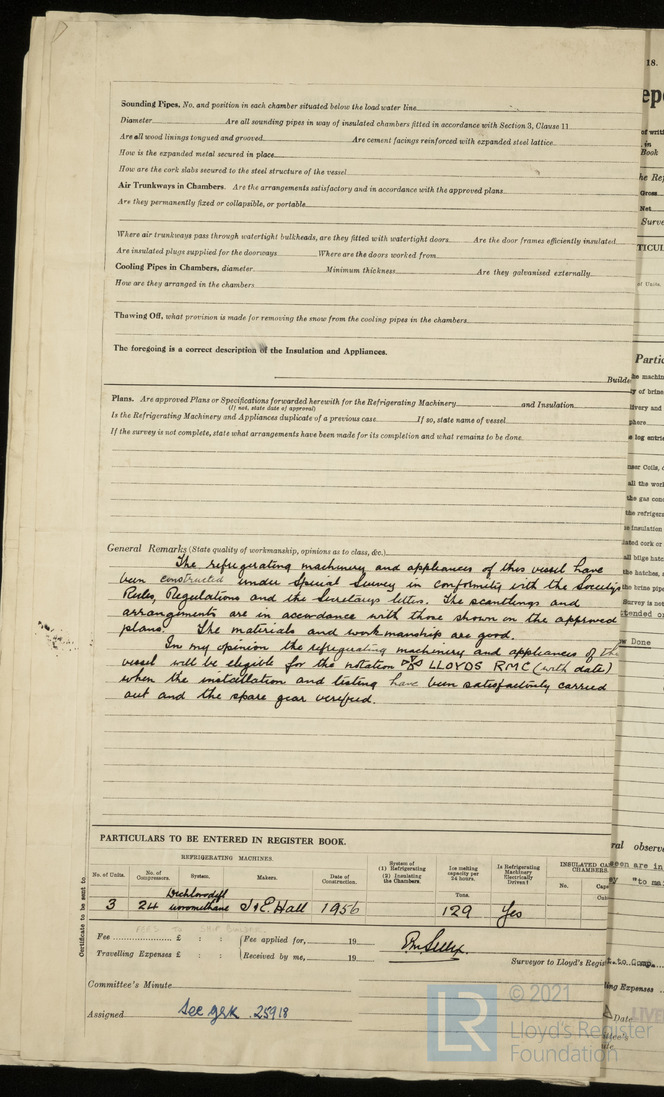 Sounding Pipes, No. and position in each chamber situated below the load water line
Diameter Are all sounding pipes in way of insulated chambers fitted in accordance with Section 3, Clause 11
Are all wood linings tongued and grooved Are cement facings reinforced with expanded steel lattice
How is the expanded metal secured in place
How are the cork slabs secured to the steel structure of the vessel
Air Trunkways in Chambers. Are the arrangements satisfactory and in accordance with the approved plans
Are they permanently fixed or collapsible, or portable
Where air trunkways pass through watertight bulkheads, are they fitted with watertight doors Are the door frames efficiently insulated
Are insulated plugs supplied for the doorways Where are the doors worked from
Cooling Pipes in Chambers, diameter Minimum thickness Are they galvanised externally
How are they arranged in the chambers
Thawing Off, what provision is made for removing the snow from the cooling pipes in the chambers
The foregoing is a correct description of the Insulation and Appliances.
Builde
Plans. Are approved Plans or Specifications forwarded herewith for the Refrigerating Machinery and Insulation
(If not, state date of approval)
Is the Refrigerating Machinery and Appliances duplicate of a previous case If so, state name of vessel
If the survey is not complete, state what arrangements have been made for its completion and what remains to be done
General Remarks (State quality of workmanship, opinions as to class, &c.)
The refrigerating machinery and appliances of this vessel have
been constructed under Special Survey in conformity with the Society's
Rules, Regulations and the Secretarys letters. The scantlings and
arrangements are in accordance with those shown on the approved
plans. The materials and workmanship are good.
In my opinion the refrigerating machinery and appliances of the
vessel will be eligible for the notation LLOYDS RMC (with date)
when the installation and testing have been satisfactorily carried
out and the spare gear verified.
PARTICULARS TO BE ENTERED IN REGISTER BOOK.
REFRIGERATING MACHINES.
No. of Units. No. of Compressors. System. Makers. Date of Construction. System of (1) Refrigerating (2) Insulating the Chambers. Ice melting capacity per 24 hours. Is Refrigerating Machinery Electrically Driven? INSULATED CA CHAMBERS.
Tons. No. Capa
3 24 J & E. Hall 1956 129 Yes
Fee £ : : Fee applied for, 19
Travelling Expenses £ : : Received by me, 19
Surveyor to Lloyd's Regis
Committee's Minute
Assigned See 25918
Certificate to be sent to
18.
ep
of writ
in
Book
he Re
Gross
Net
Surve
TICUL
of Units.
Partic
he machin
ty of brine
livery and
phere
e log entri
nser Coils, c
all the worl
the gas conc
the refrigera
e insulation
lated cork or
all bilge hatc
the hatches, a
the brine pipe
Survey is not
tended or
ow Done
ral observa
een are in
y "to mai
t. to Comp.
ing Expenses
Date
LIVE
ittee's
© 2021
LR
Lloyd's Register
Foundation